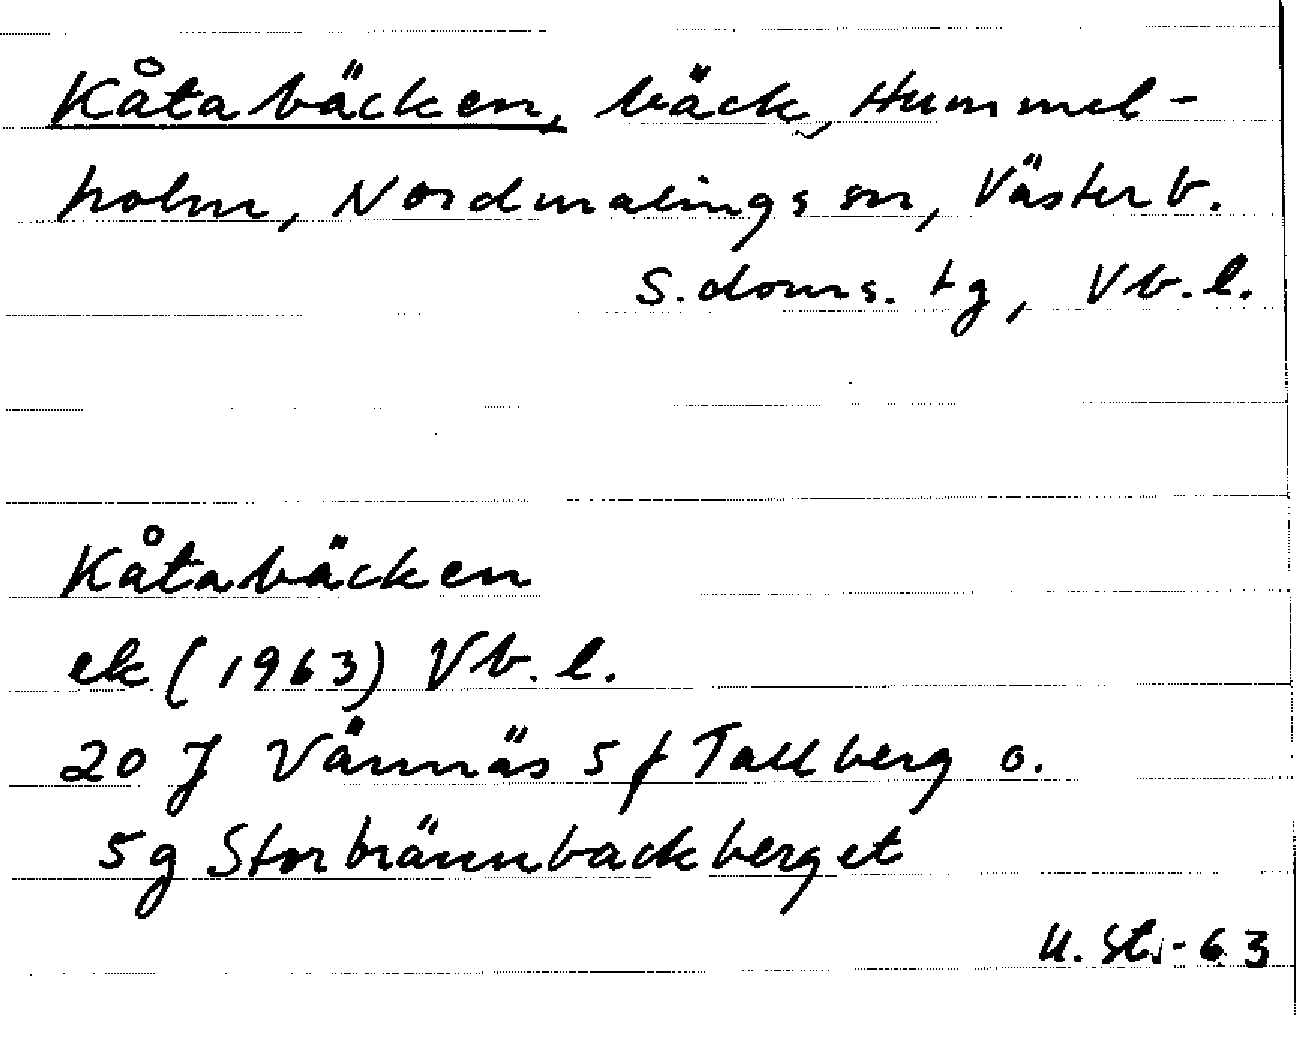 Kåtabäcken, bäck, Hummel-
holm, Nordmalings sn, Västerb.
s. doms. tg, Vb. l.
Kåtabäcken
ek (1963) Vb. l.
20 J Vännäs 5 f Tallberg o.
5g Storbrännbackberget
U. St. -63